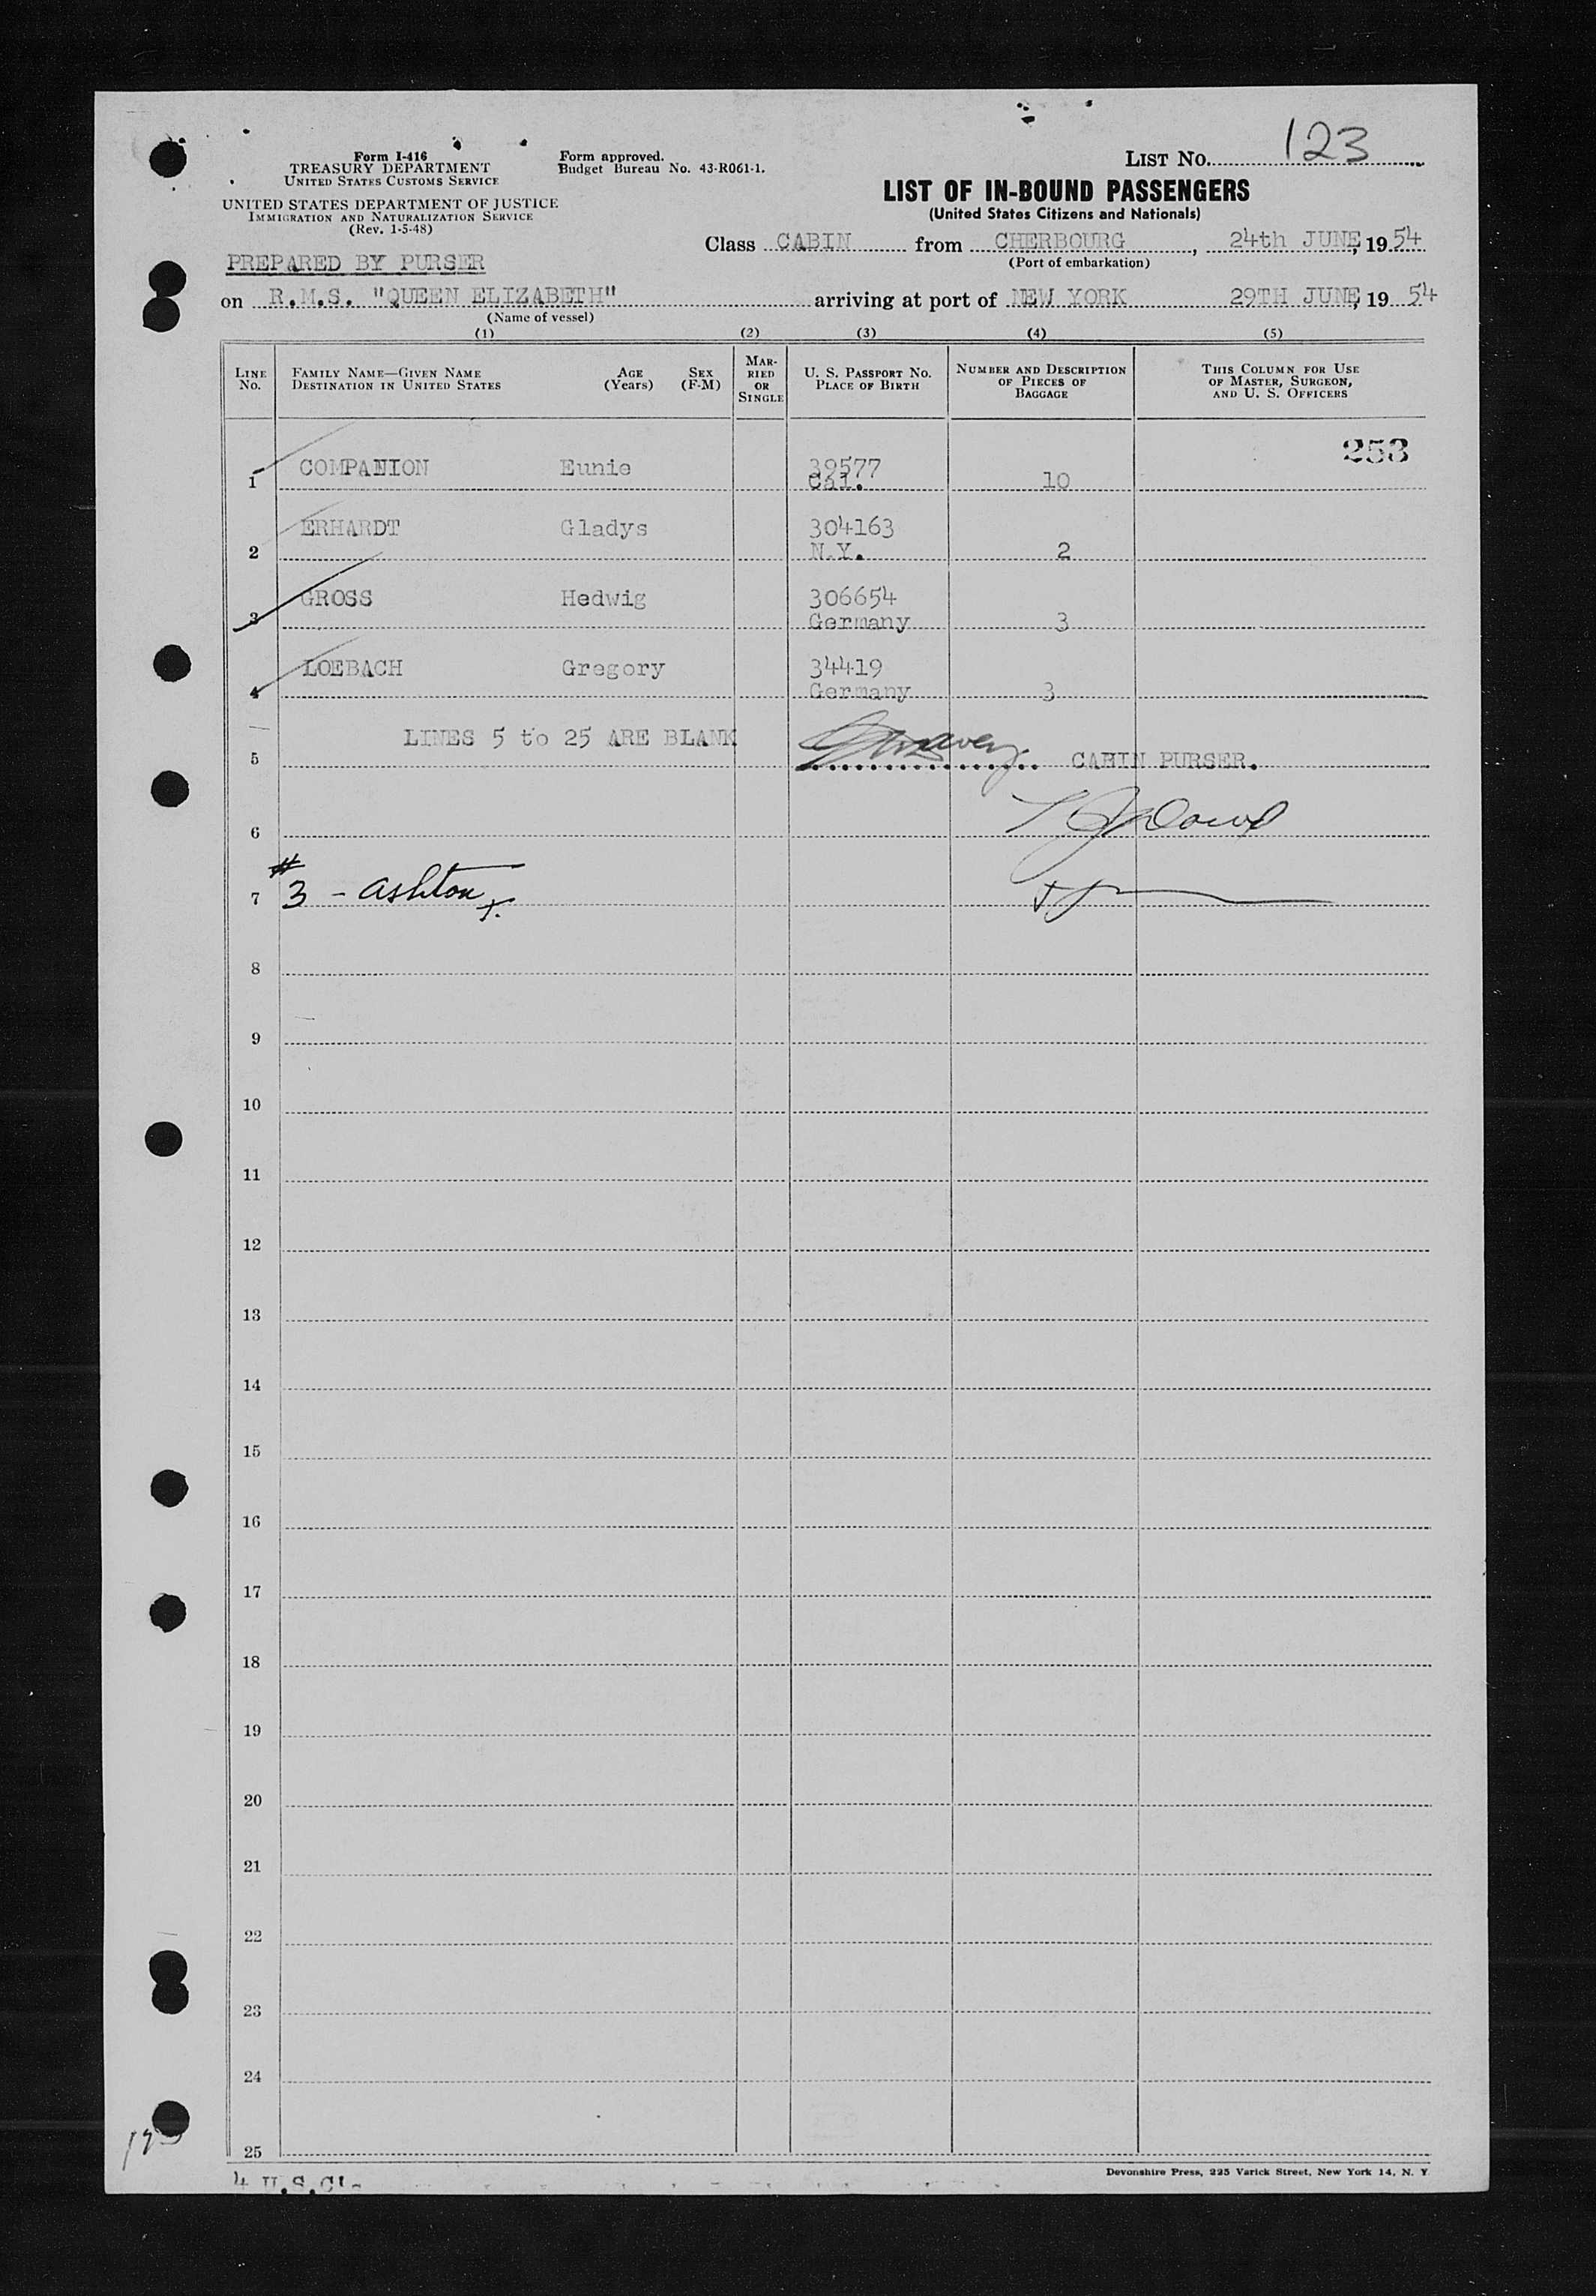 LIST NO. 123
Form I-416
TREASURY DEPARTMENT
UNITED STATES CUSTOMS SERVICE
UNITED STATES DEPARTMENT OF JUSTICE
IMMIGRATION AND NATURALIZATION SERVICE
(Rev. 1-5-48)
Form approved.
Budget Bureau No. 43-R061-1.
LIST OF IN-BOUND PASSENGERS
(United States Citizens and Nationals)
Class CABIN from CHERBOURG, 24th JUNE, 1954
(Port of embarkation)
PREPARED BY PURSER
on R.M.S. "QUEEN ELIZABETH" arriving at port of NEW YORK 29TH JUNE, 1954
(Name of vessel)
(1) (2) (3) (4) (5)
LINE NO.
FAMILY NAME—GIVEN NAME
DESTINATION IN UNITED STATES
AGE (Years)
SEX (F-M)
MARRIED OR SINGLE
U. S. PASSPORT NO.
PLACE OF BIRTH
NUMBER AND DESCRIPTION OF PIECES OF BAGGAGE
THIS COLUMN FOR USE OF MASTER, SURGEON, AND U. S. OFFICERS
253
1 COMPANION Eunie 39577
Cal. 10
2 ERHARDT Gladys 304163
N.Y. 2
3 GROSS Hedwig 306654
Germany 3
4 LOEBACH Gregory 34419
Germany 3
5 LINES 5 to 25 ARE BLANK CABIN PURSER.
6
7 #3 - Ashton
8
9
10
11
12
13
14
15
16
17
18
19
20
21
22
23
24
25
4 U.S.C
Devonshire Press, 225 Varick Street, New York 14, N. Y.